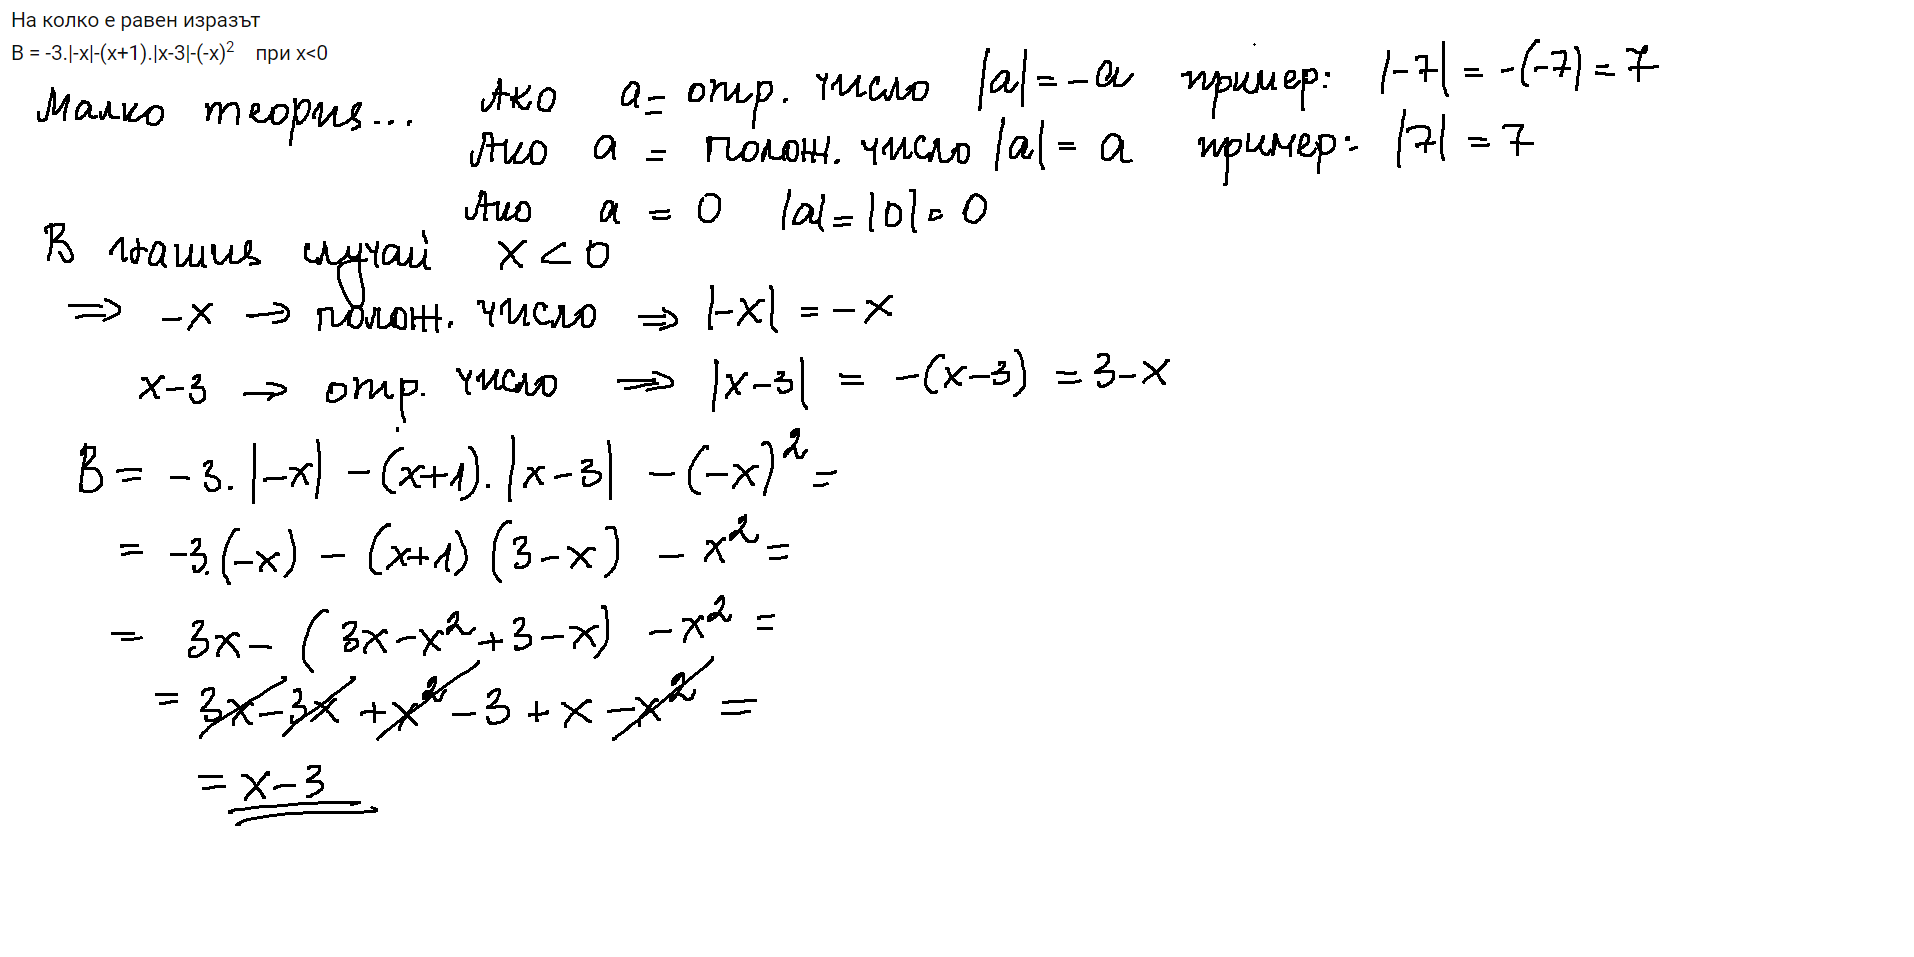 На колко е равен изразът
B = -3.|-x|-(x+1).|x-3|-(-x)² при x<0
Малко теория... Ако a = отр. число |a| = -a пример: |-7| = -(-7) = 7
Ако a = полож. число |a| = a пример: |7| = 7
Ако a = 0 |a| = |0| = 0
В нашия случай x < 0
⇒ -x → полож. число ⇒ |-x| = -x
x-3 → отр. число ⇒ |x-3| = -(x-3) = 3-x
B = -3.|-x| -(x+1).|x-3| -(-x)² =
= -3.(-x) - (x+1) (3-x) - x² =
= 3x - (3x-x²+3-x) -x² =
= 3x-3x +x² -3 + x -x² =
= x-3